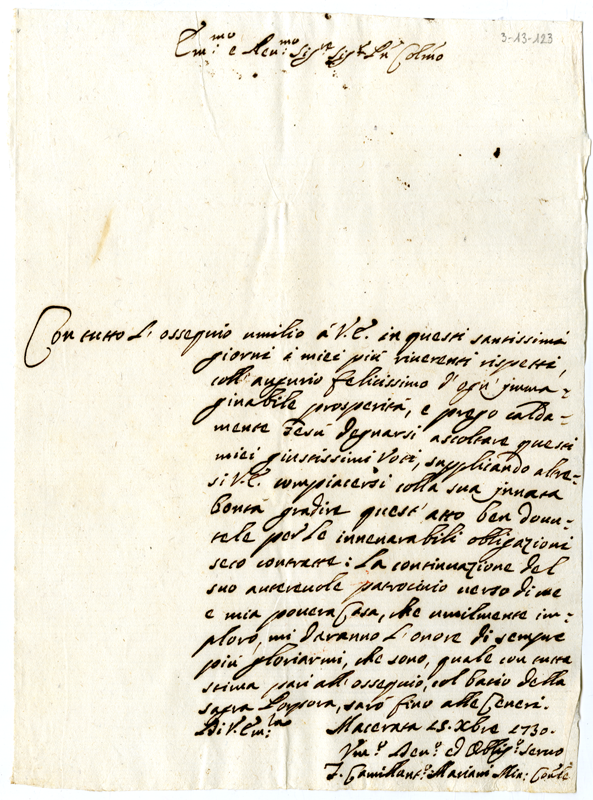 3-13-123
Em:mo e Reu:mo Sig.re Sig.re Pn Colmo
Con tutto l'ossequio umilio á V.E. in questi santissimi
giorni i miei piú riuerenti rispetti,
coll'augurio felicissimo d'ogn'imma-
ginabile prosperitá, e prego calda-
mente Jesú degnarsi ascoltare questi
miei giustissimi voti, supplicando altre-
si V.E. compiacersi colla sua innata
bontá gradire quest'atto ben douu-
tele per le innenarabili obligazioni
seco contratte: La continuazione del
suo autereuole patrocinio uerso di me
e mia pouera Casa, che umilmente im-
ploro, mi daranno l'onore di sempre
piú gloriarmi, che sono, quale con tutta
stima pari all'ossequio, col bacio della
sacra Porpora, saró fino alle Ceneri.
Di V. Em:za Macerata 15. Xbre 1730.
Vm.o Deu.o ed Obblig.o seruo
F. Camill Ant.o Mariani Min: Conle